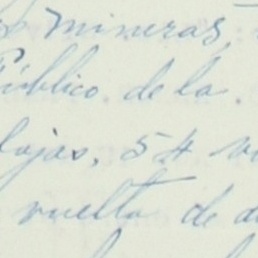 mineras,
Público de la
fojas, 54
vuelta de